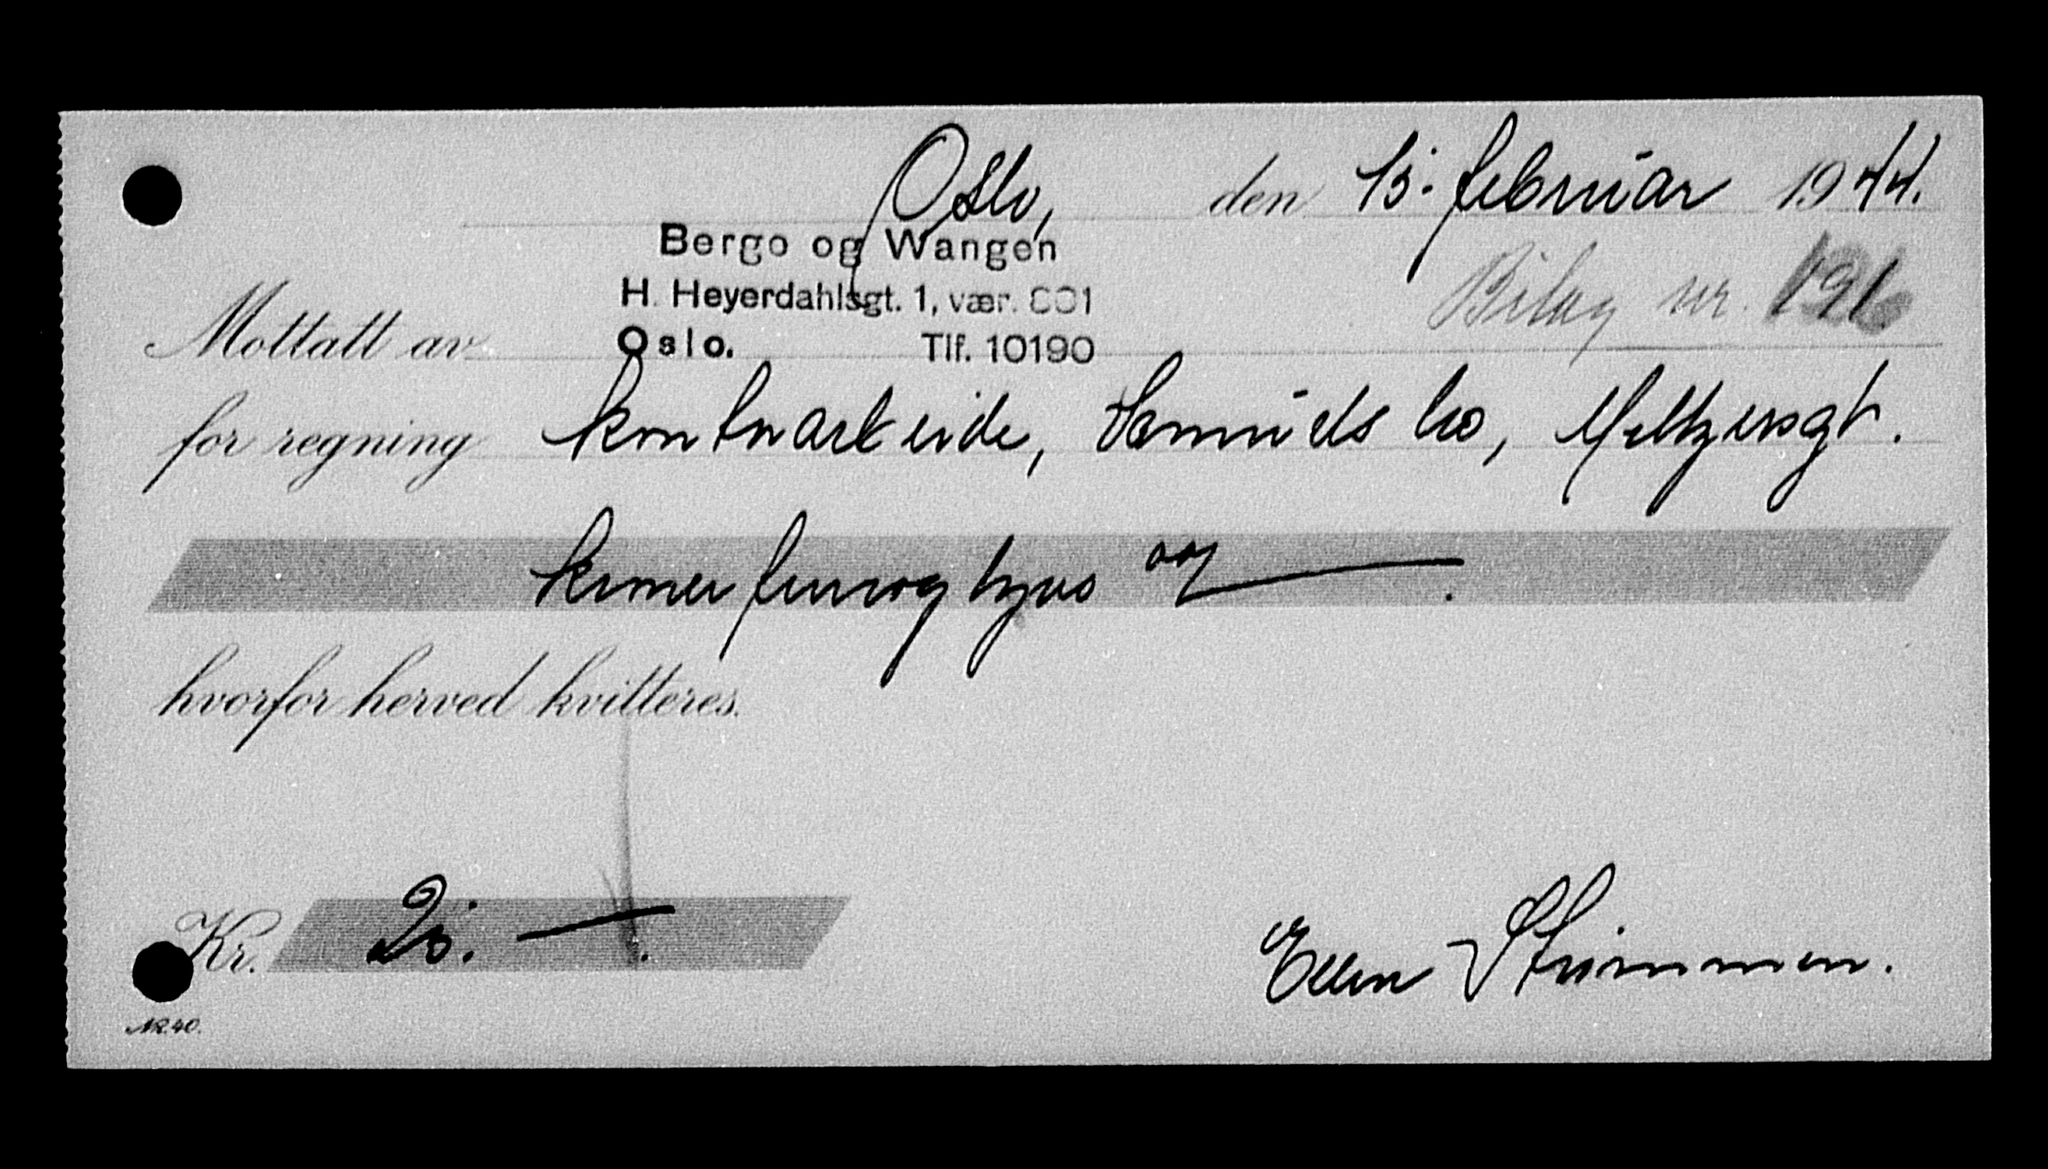 Oslo, den 15. februar 1944.
Bergo og Wangen
H. Heyerdahlsgt. 1, vær. 801
Bilag nr. 191
Mottatt av Oslo. Tlf. 10190
for regning kontorarbeide, Meltzersgt.
hvorfor herved kvitteres.
Kr. 20. —.
Ellen
NR. 40.